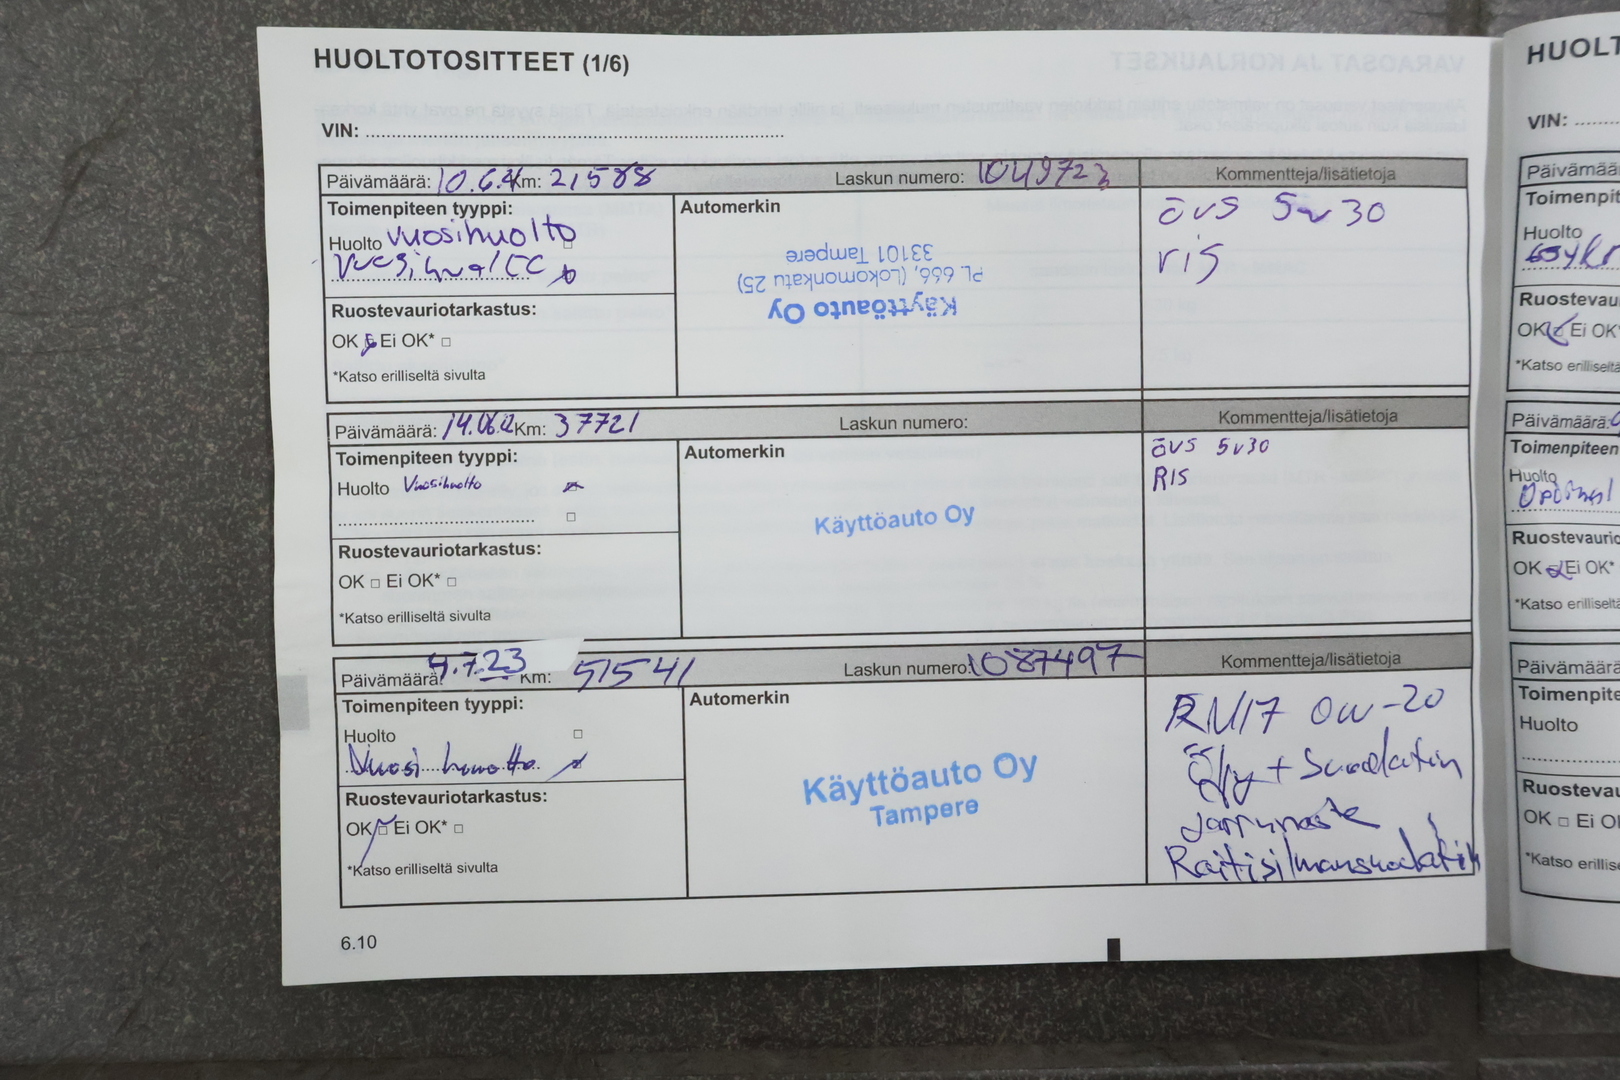 HUOLTOTOSITTEET (1/6)
VIN:
Päivämäärä: 10.6. Km: 21588 Laskun numero: 1049723 Kommentteja/lisätietoja
Toimenpiteen tyyppi:
Huolto Vuosihuolto
Vuosihuolto
Ruostevauriotarkastus:
OK □ Ei OK* □
*Katso erilliseltä sivulta
Automerkin
Käyttöauto Oy
PL 666, (Lokomonkatu 25)
33101 Tampere
övs 5w30
ris
Päivämäärä: 14.06. Km: 37721 Laskun numero: Kommentteja/lisätietoja
Toimenpiteen tyyppi:
Huolto Vuosihuolto
□
Ruostevauriotarkastus:
OK □ Ei OK* □
*Katso erilliseltä sivulta
Automerkin
Käyttöauto Oy
övs 5w30
RIS
Päivämäärä: 4.7.23 Km: 51541 Laskun numero: 1087497 Kommentteja/lisätietoja
Toimenpiteen tyyppi:
Huolto □
Vuosihuolto
Ruostevauriotarkastus:
OK □ Ei OK* □
*Katso erilliseltä sivulta
Automerkin
Käyttöauto Oy
Tampere
RN17 0w-20
Öljy + Suodatin
Jarruneste
Raitisilmansuodatin
6.10
HUOLT
VIN:
Päivämää
Toimenpit
Huolto
Ruostevau
OK □ Ei OK
*Katso erilliseltä
Päivämäärä:
Toimenpiteen
Huolto
Ruostevaurio
OK □ Ei OK*
*Katso erilliseltä
Päivämäärä
Toimenpite
Huolto
Ruosteva
OK □ Ei O
*Katso erillise